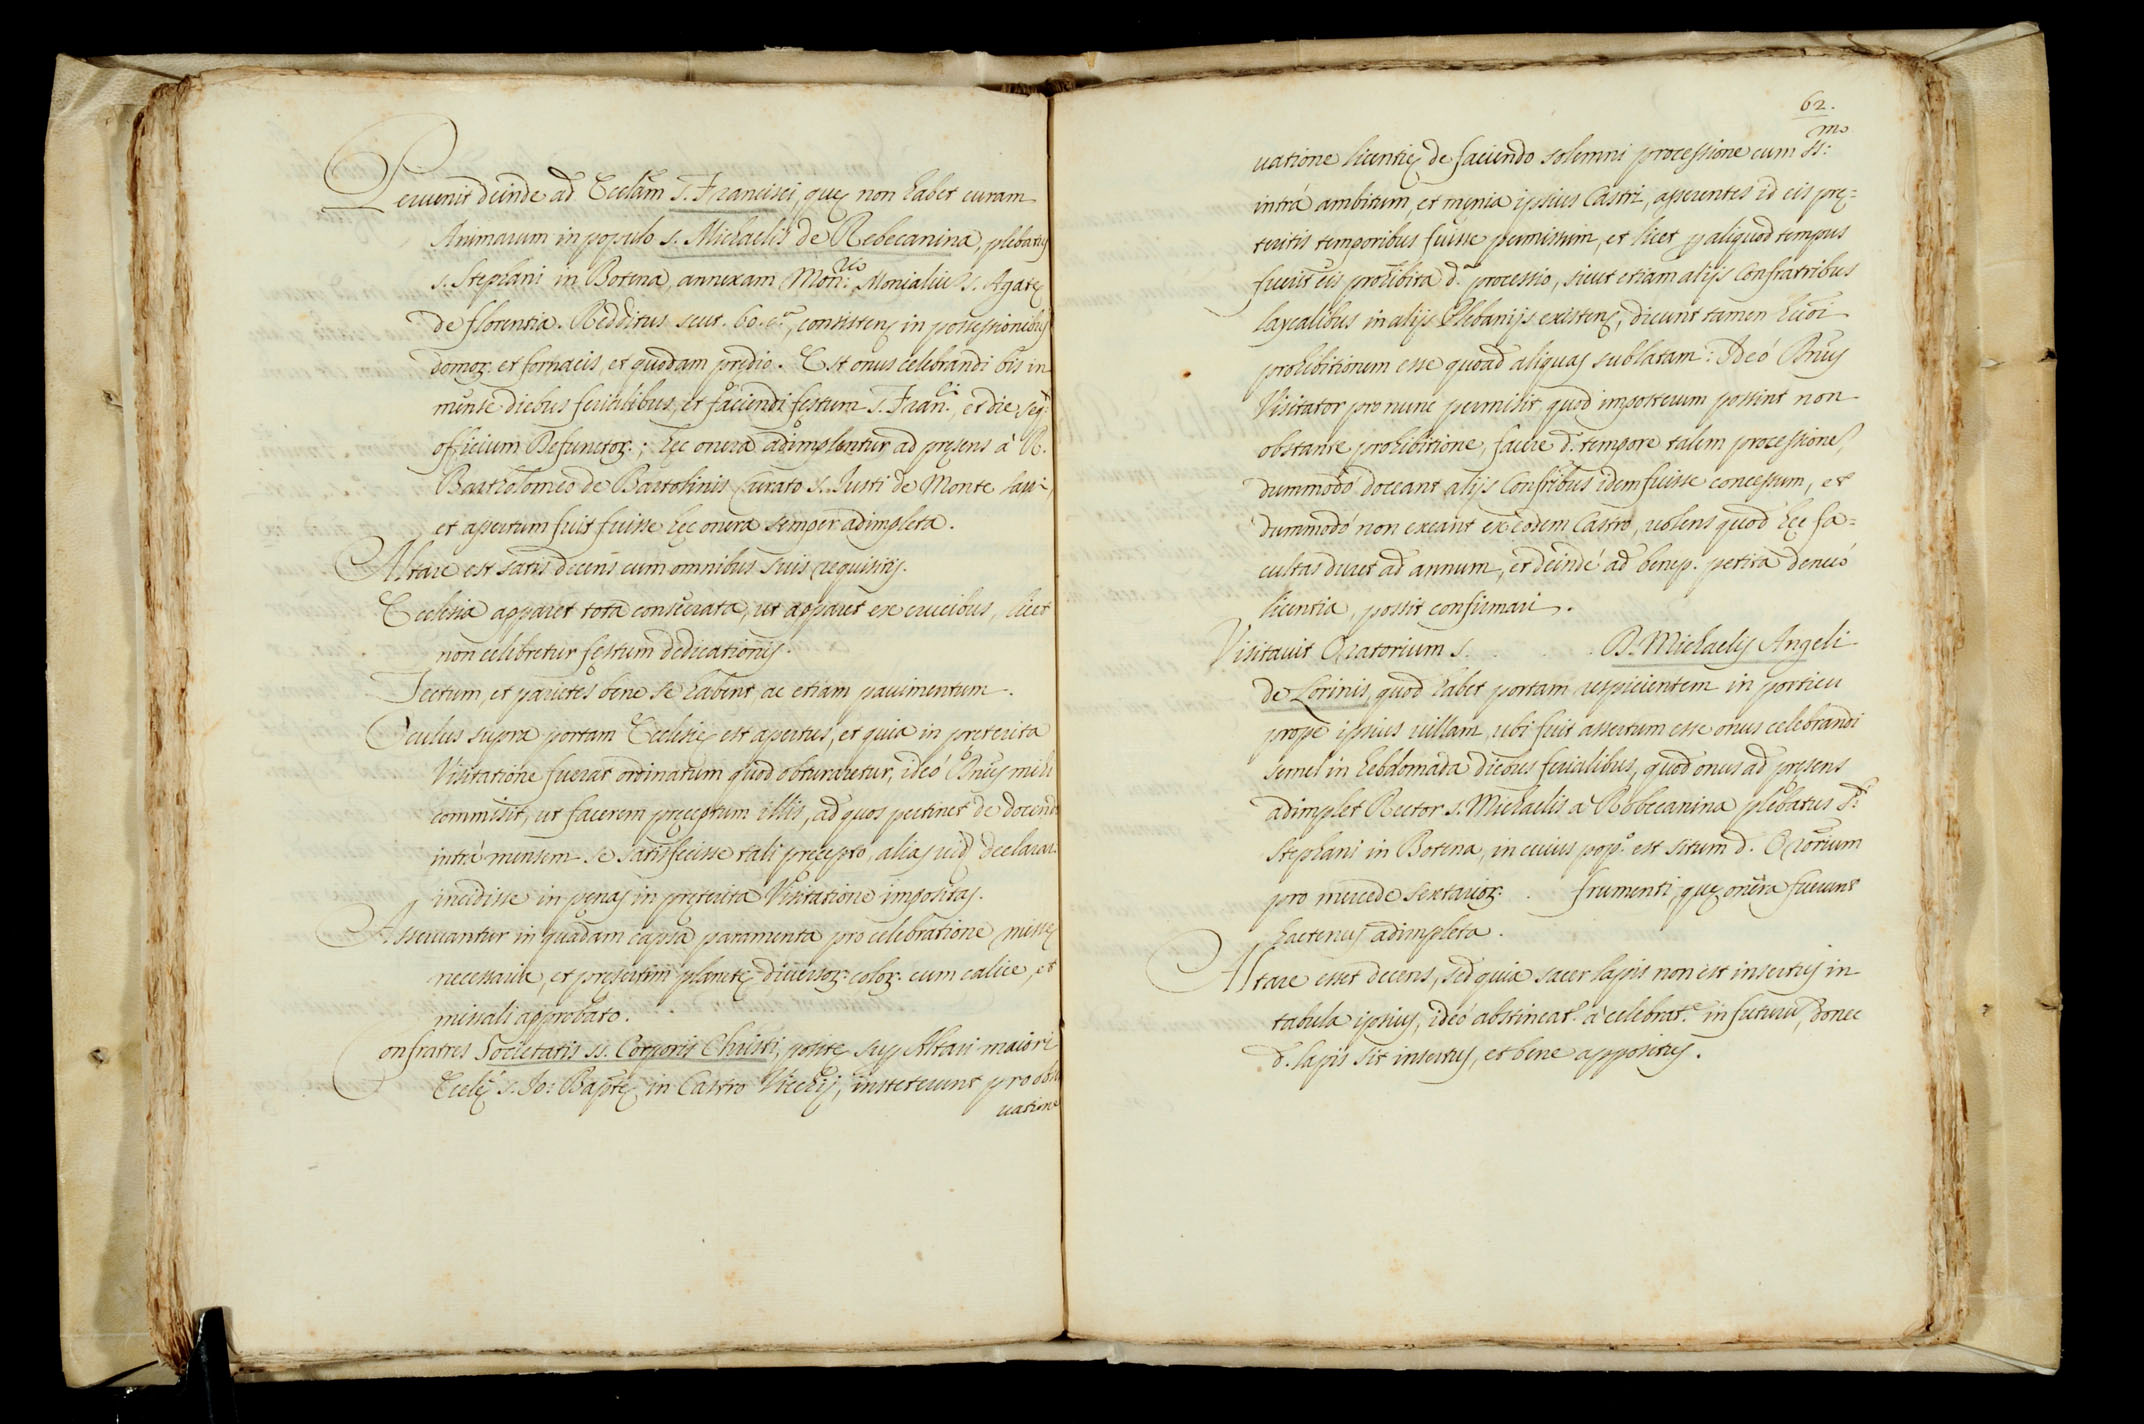 Peruenit deinde ad Eccłam S. Francisci, quę non habet curam
Animarum in populo s. Michaelis de Rebecanina, plebatus
s. Stephani in Botena, annexam Mon:rio Monialiũ S. Agatę
de florentia. Redditus scut. 60. c.a, consistens in possessionibus
domoꝝ et fornacis, et quodam prędio. Est onus celebrandi bis in
mense diebus ferialibus, et faciendi festum S. Fran.ci, et die seq.
officium Defunctoꝝ; hęc onera adimplentur ad pręsens à R.
Bartholomeo de Bartolinis Curato S. Justi de Monte
et assertum fuit fuisse hęc onera semper adimpleta.
Altare est satis decens cum omnibus suis requisitis.
Ecclesia apparet tota consecrata, ut apparet ex crucibus, licet
non celebretur festum dedicationis.
Tectum, et parietes bene se habent ac etiam pauimentum.
Oculus supra portam Ecclesię est apertus, et quia in preterita
Visitatione fuerat ordinatum quod obturaretur, ideò Rm̃us mihi
commisit, ut facerem pręceptum illis, ad quos pertinet de docendo
intrà mensem se satisfecisse tali pręcepto, alias uid. declarar.
incidisse in penas in pręterita Visitatione impositas.
Asseruantur in quadam capsa paramenta pro celebratione missę
necessaria, et pręsertim planetę diuersoꝝ coloꝝ cum calice, et
missali approbato.
Confratres Societatis ss. Corporis Christi, positę sup Altari maiori
Eccłę S. Jo: Bapt.ę in Castro Vicchij, institerunt pro obser
uatione
62.
uatione licentię de faciendo solemni processione cum ss:mo
intrà ambitum, et męnia ipsius Castri, asserentes id eis prę=
teritis temporibus fuisse permissum, et licet p aliquod tempus
fuerit eis prohibita d.a processio, sicut etiam alijs Confratribus
laycalibus in alijs Plebanijs existens, dicunt tamen hũoi
prohibitionem esse quoad aliquas sublatam: Ideò Rm̃us
Visitator pro nunc permisit, quod imposterum possint non
obstante prohibitione, facere d.o tempore talem processionẽ,
dummodo doceant alijs Confribus idem fuisse concessum, et
dummodò non exeant ex eodem Castro, uolens quod hęc fa=
cultas duret ad annum, et deindè ad benep. petita denuò
licentia, possit confirmari.
Visitauit Oratorium s. . . . D. Michaelis Angeli
de Lorinis, quod habet portam respicientem in porticu
prope ipsius uillam, ubi fuit assertum esse onus celebrandi
semel in hebdomada diebus ferialibus, quod onus ad pręsens
adimplet Rector s. Michaelis a Robecanina plebatus S.ti
Stephani in Botena, in cuius pop.o est situm d. Orõrium
pro mercede sextarioꝝ . frumenti, quę onera fuerunt
hactenus adimpleta.
Altare esset decens, sed quia sacer lapis non est insertus in
tabula ipsius, ideò abstineat.r à celebrat.e in futurũ, donec
d. lapis sit insertus, et bene appositus.